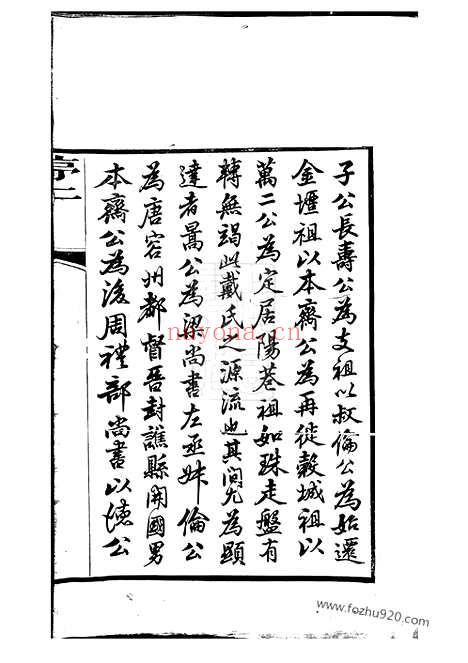 子公長壽公為支祖以叔倫公為始遷
金壇祖以本齋公為再徙穀城祖以
萬二公為定居陽巷祖如珠走盤有
轉無竭此戴氏之源流也其間尤為顯
達者暠公為梁尚書左丞妹倫公
為唐容州都督晉封譙縣開國男
本齋公為後周禮部尚書以德公
序二
nhyona.com
www.fozhu920.com